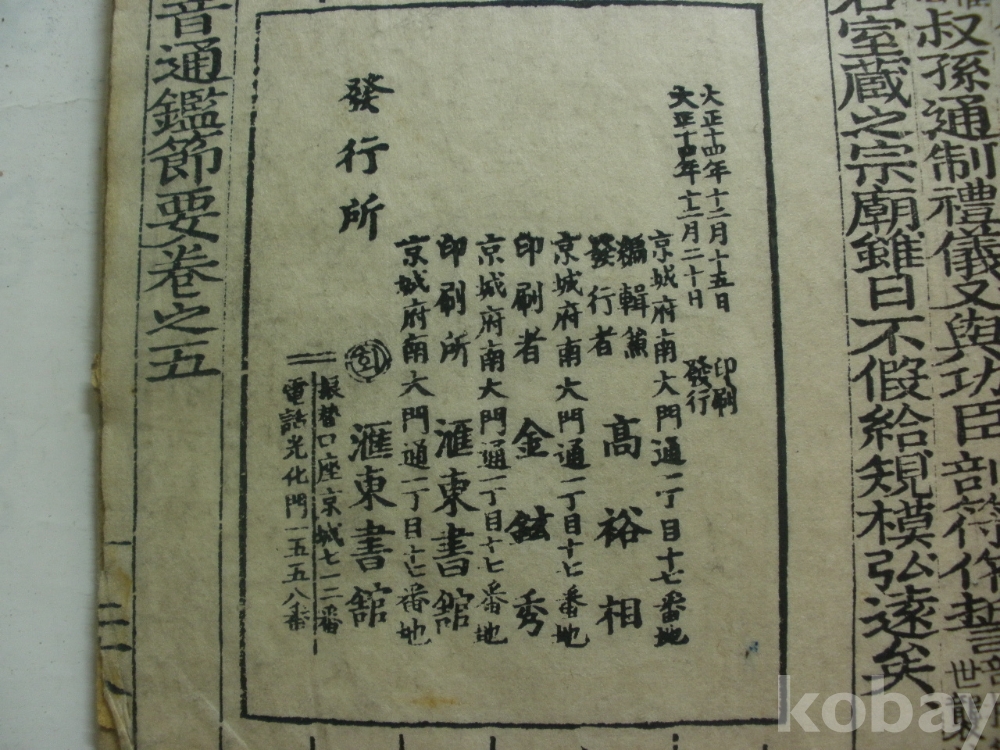 叔孫通制禮儀又與功臣剖符作誓
室蔵之宗廟雖日不假給規模弘遠矣
世
大正十四年十二月十五日 印刷
大正十四年十二月二十日 發行
京城府南大門通一丁目十七番地
編輯兼
發行者 高裕相
京城府南大門通一丁目十七番地
印刷者 金鉉秀
京城府南大門通一丁目十七番地
印刷所 滙東書館
京城府南大門通一丁目十七番地
發行所 회 滙東書館
振替口座京城七一二番
電話光化門一五五八番
音通鑑節要卷之五
kobay